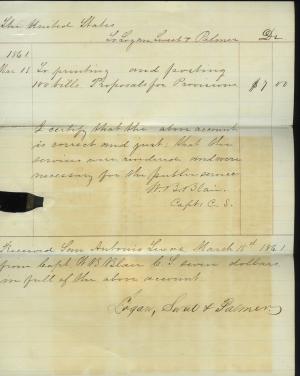 The United States
To Logan Sweet & Palmer Dr
1861
Mar 18 To printing and posting
100 bills Proposals for Provisions $7 00
I certify that the above account
is correct and just; that the
services were rendered and were
necessary for the public service
W. B. Blair
Capt. C. S.
Received San Antonio Texas March 18th 1861
from Capt. W. B. Blair C. S. seven dollars
in full of the above account
Logan, Sweet & Palmer